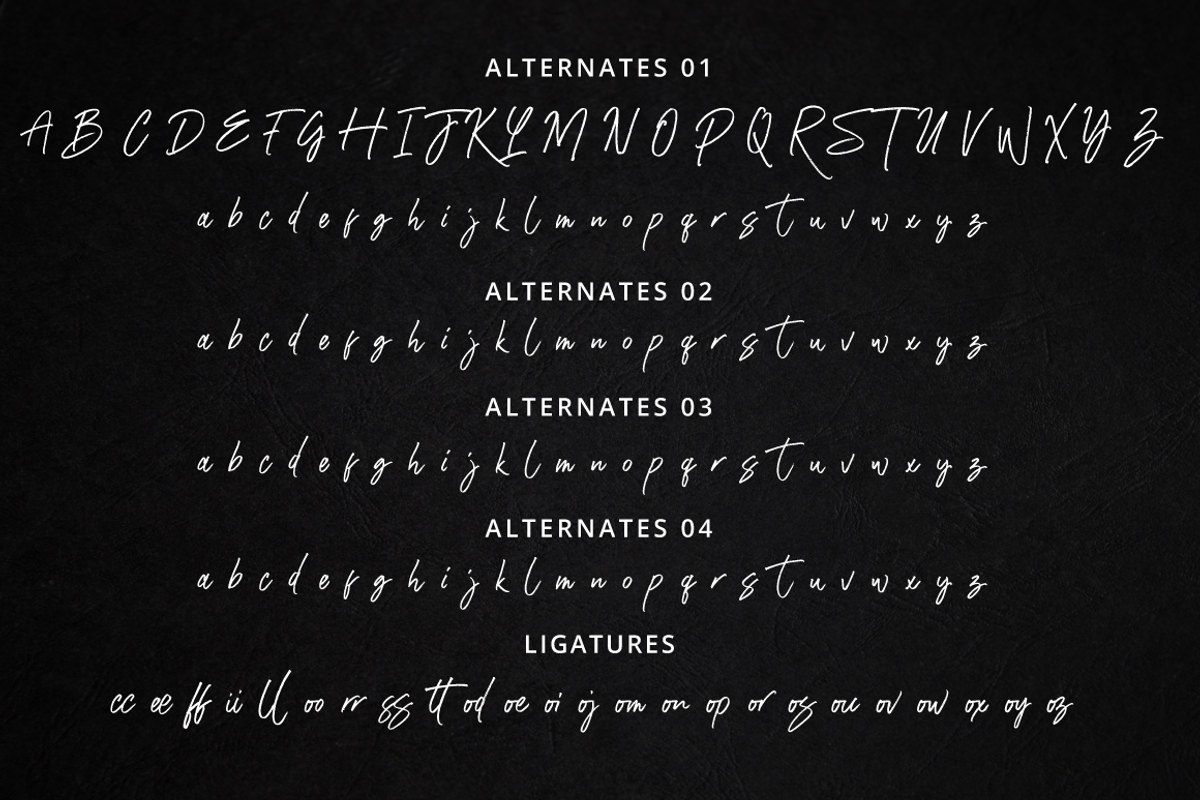 ALTERNATES 01
A B C D E F G H I J K L M N O P Q R S T U V W X Y Z
a b c d e f g h i j k l m n o p q r s t u v w x y z
ALTERNATES 02
a b c d e f g h i j k l m n o p q r s t u v w x y z
ALTERNATES 03
a b c d e f g h i j k l m n o p q r s t u v w x y z
ALTERNATES 04
a b c d e f g h i j k l m n o p q r s t u v w x y z
LIGATURES
cc ee ff ii ll oo rr ss tt od oe oi oj om on op or os ou ov ow ox oy oz